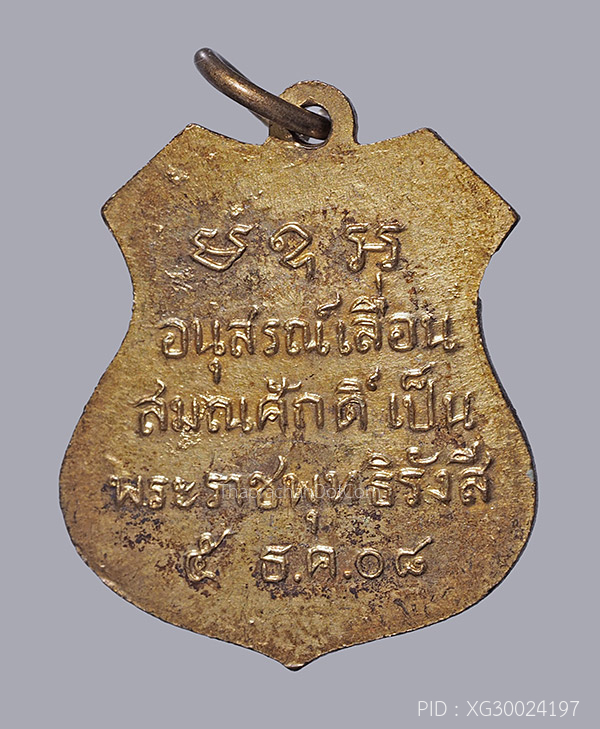 อนุสรณ์เลื่อน
สมณศักดิ์ เป็น
พระราชพุทธิรังสี
๕ ธ.ค.๐๘
PID : XG30024197